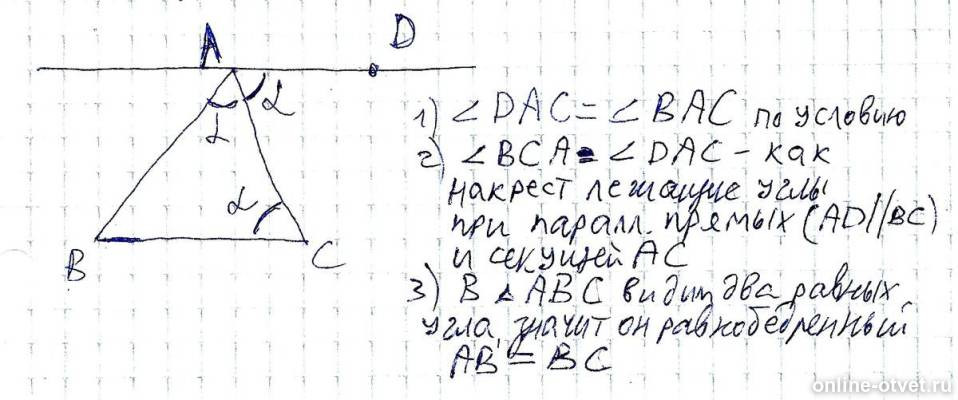 A
D
α
α
α
B
C
1) ∠DAC = ∠BAC по условию
2) ∠BCA = ∠DAC - как
накрест лежащие углы
при паралл. прямых (AD//BC)
и секущей AC
3) В ∠ABC видим два равных
угла, значит он равнобедренный
AB = BC
online-otvet.ru